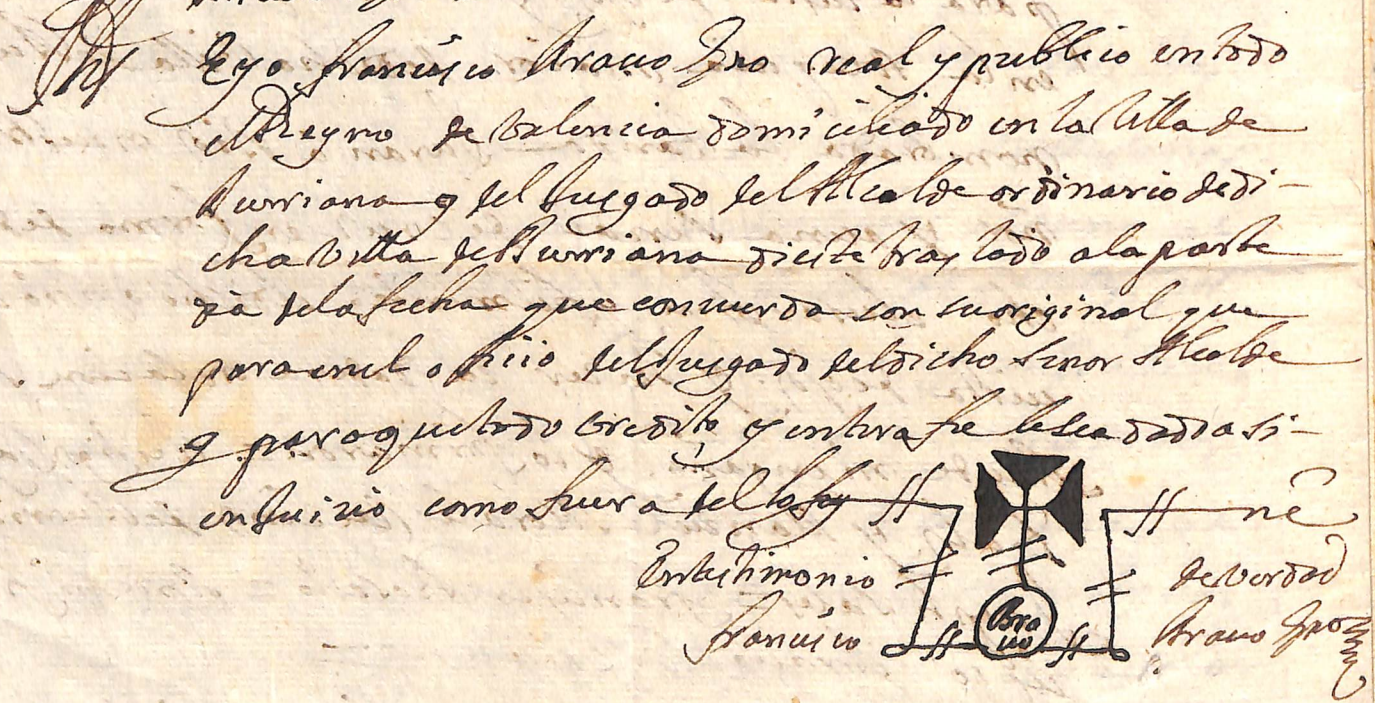 E yo francisco Bravo Ssno real y publico en todo
el Reyno de Valencia domiciliado en la Villa de
Burriana y del Juzgado del Alcalde ordinario de di-
cha Villa de Burriana di este traslado a la parte
dia de la fecha que concuerda con su original que
para en el oficio del Juzgado del dicho Senor Alcalde
y para que todo credito y entera fe le sea dada asi
en Juizio como fuera del lo sig ne
En testimonio de verdad
francisco Bravo Ssno
Bra
vo